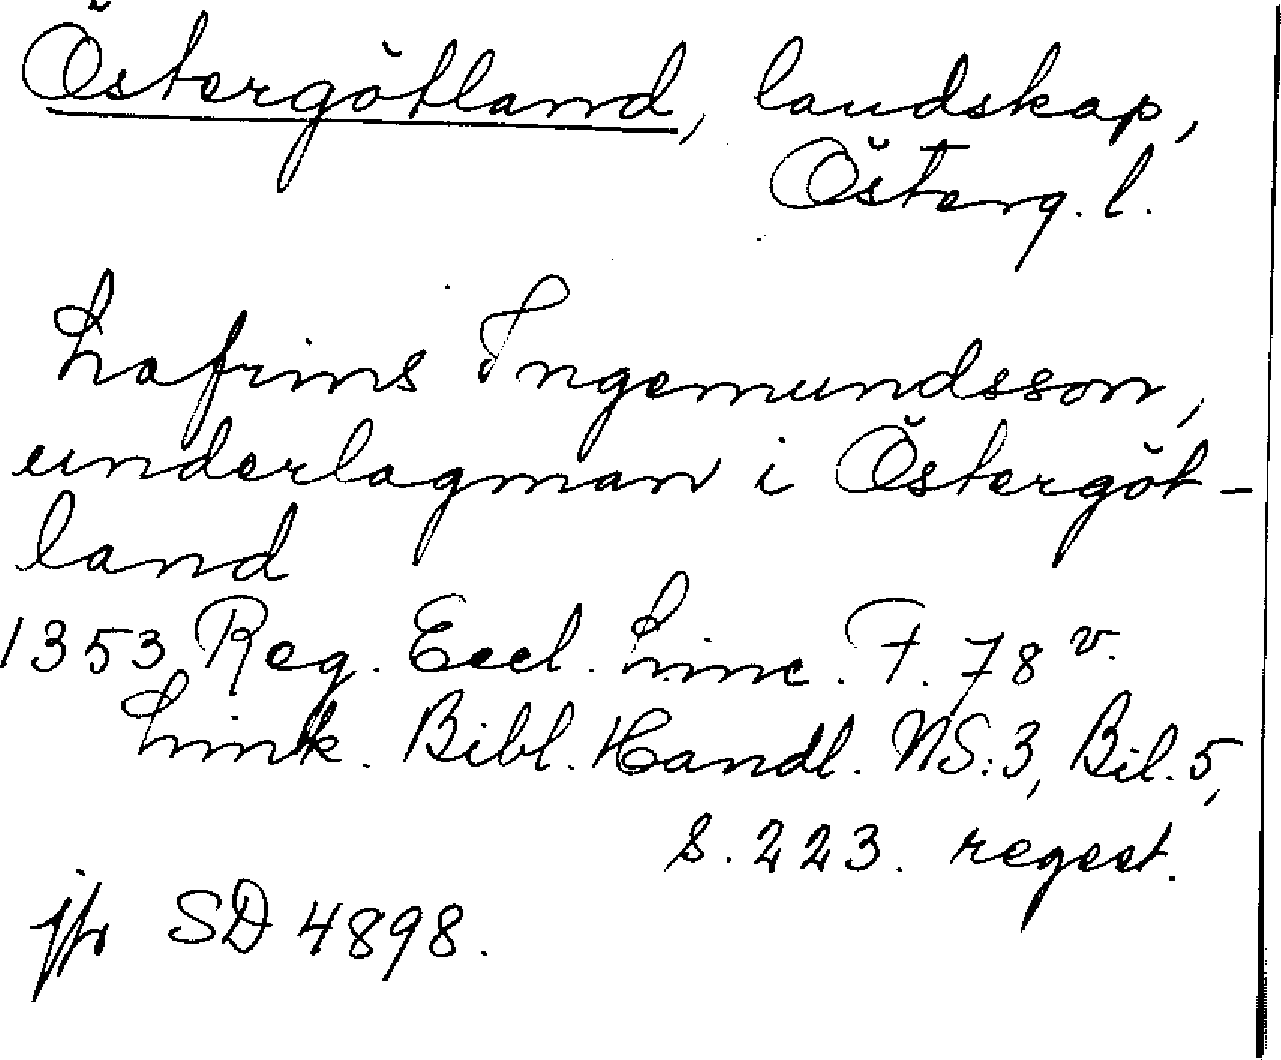 Östergötland, landskap,
Österg. l.
Lafrins Ingemundsson,
underlagman i Östergöt-
land
1353 Reg. Eccl. Linc. F. 78 v.
Link. Bibl. Handl. NS:3, Bil. 5,
s. 223. regest.
jfr SD 4898.